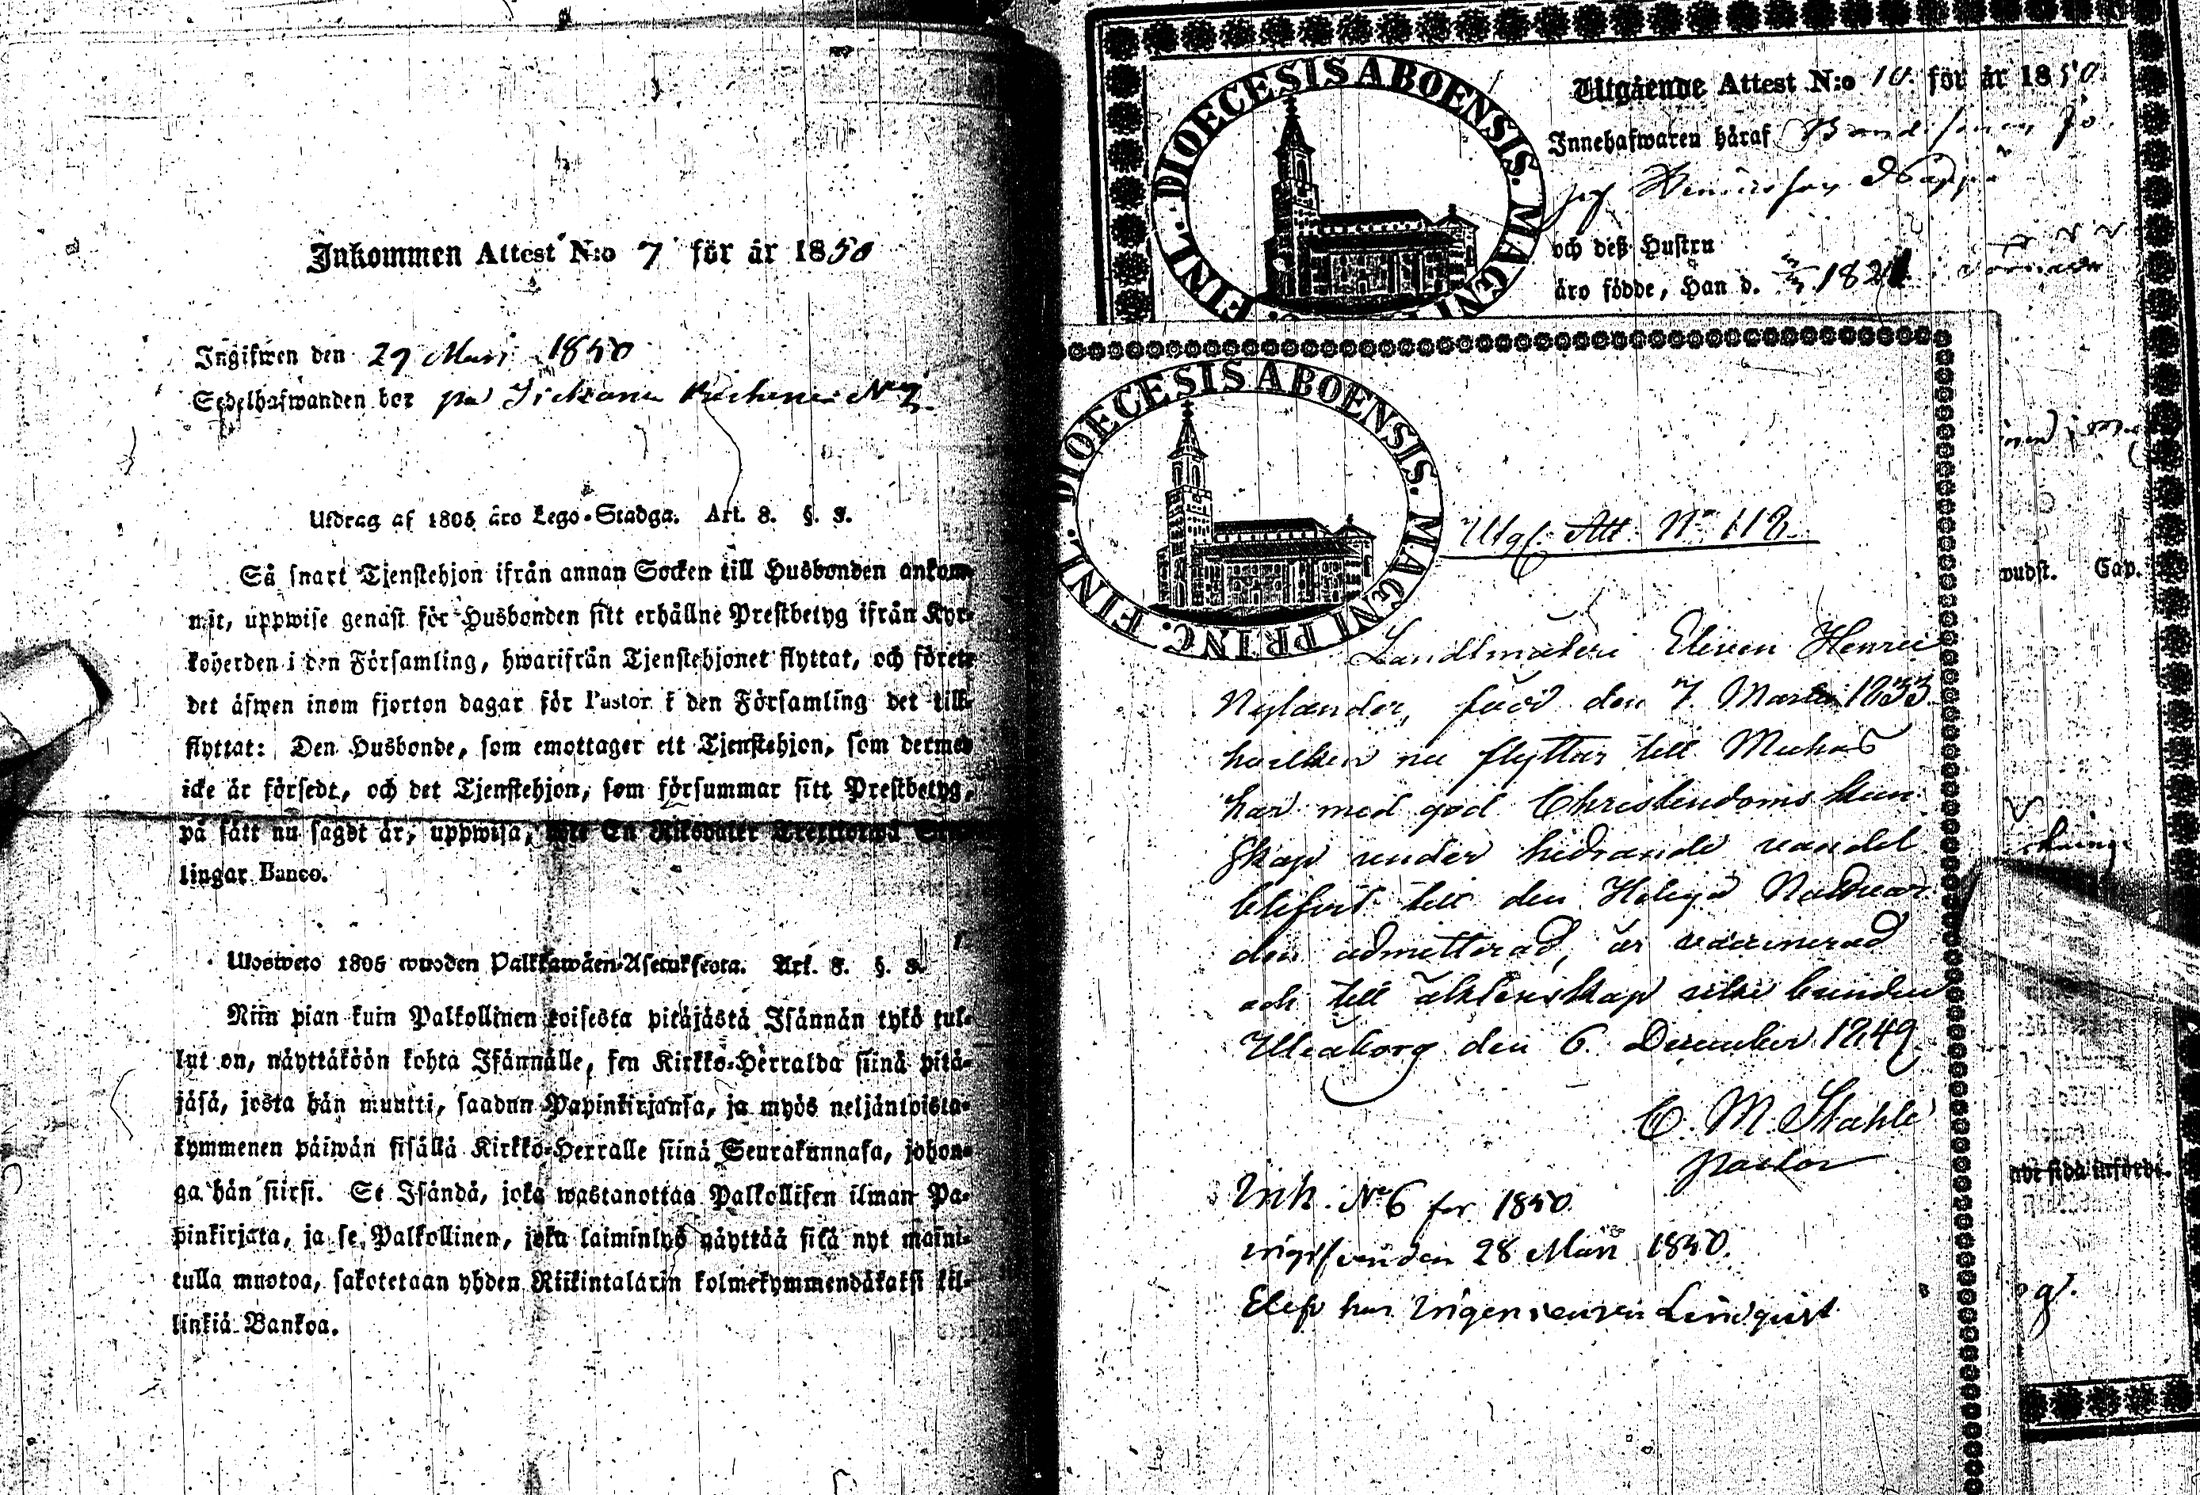 Inkommen Attest N:o 7 för år 1850
Ingifwen den 29 Mars 1850
Sedelhafwanden bor på N:o 2.
Utdrag af 1805 åro Lego-Stadga. Art. 8. §. 8.
Så snart Tjenstehjon ifrån annan Socken till Husbonden ankom-
mit, uppwise genast för Husbonden sitt erhållne Prestbetyg ifrån Kyr-
koherden i den Församling, hwarifrån Tjenstehjonet flyttat, och förete
det äfwen inom fjorton dagar för Pastor i den Församling det till-
flyttat: Den Husbonde, som emottager ett Tjenstehjon, som dermed
icke är försedt, och det Tjenstehjon, som försummar sitt Prestbetyg,
på sätt nu sagdt är, uppwisa, En Riksdaler
lingar Banco.
Ulosweto 1805 wuoden Palkkawäen-Asetuksesta. Art. 8. §. 8.
Niin pian kuin Palkollinen toisesta pitäjästä Isännän tykö tul-
lut on, näyttäköön kohta Isännälle, sen Kirkko-Herralda siinä pitä-
jäsä, josta hän muutti, saadun Papinkirjansa, ja myös neljäntoista-
kymmenen päiwän sisällä Kirkko-Herralle siinä Seurakunnasa, johon-
ga hän siirsi. Se Isändä, joka wastanottaa Palkollisen ilman Pa-
pinkirjata, ja se Palkollinen, joka laiminlyö näyttää sitä nyt maini-
tulla muotoa, sakotetaan yhden Riikintalarin kolmekymmendäkaksi kil-
linkiä Bankoa.
DIOECESIS ABOENSIS. MAGNI FINL.
Utgående Attest N:o 10 för år 1850.
Innehafwaren häraf
och deß Hustru
äro födde, Han d. 1821
DIOECESIS ABOENSIS. MAGNI PRINC. FINL.
Utgf. Att. N:o 112.
Landtmäteri Eleven Henric
Nylander, född den 7 Martii 1833
hvilken nu flyttar till
har med god Christendoms kun-
skap under hedrande vandel
blifvit till den Heliga Nattvar-
den admitterad, är vaccinerad
och till äktenskap icke bunden
Uleåborg den 6. December 1849.
C. M. Stahle
Pastor
Ink. N:o 6 för 1850.
ingifven den 28 Mars 1850.
Elev hos Ingenieuren Lindqvist
wudst. Cap.